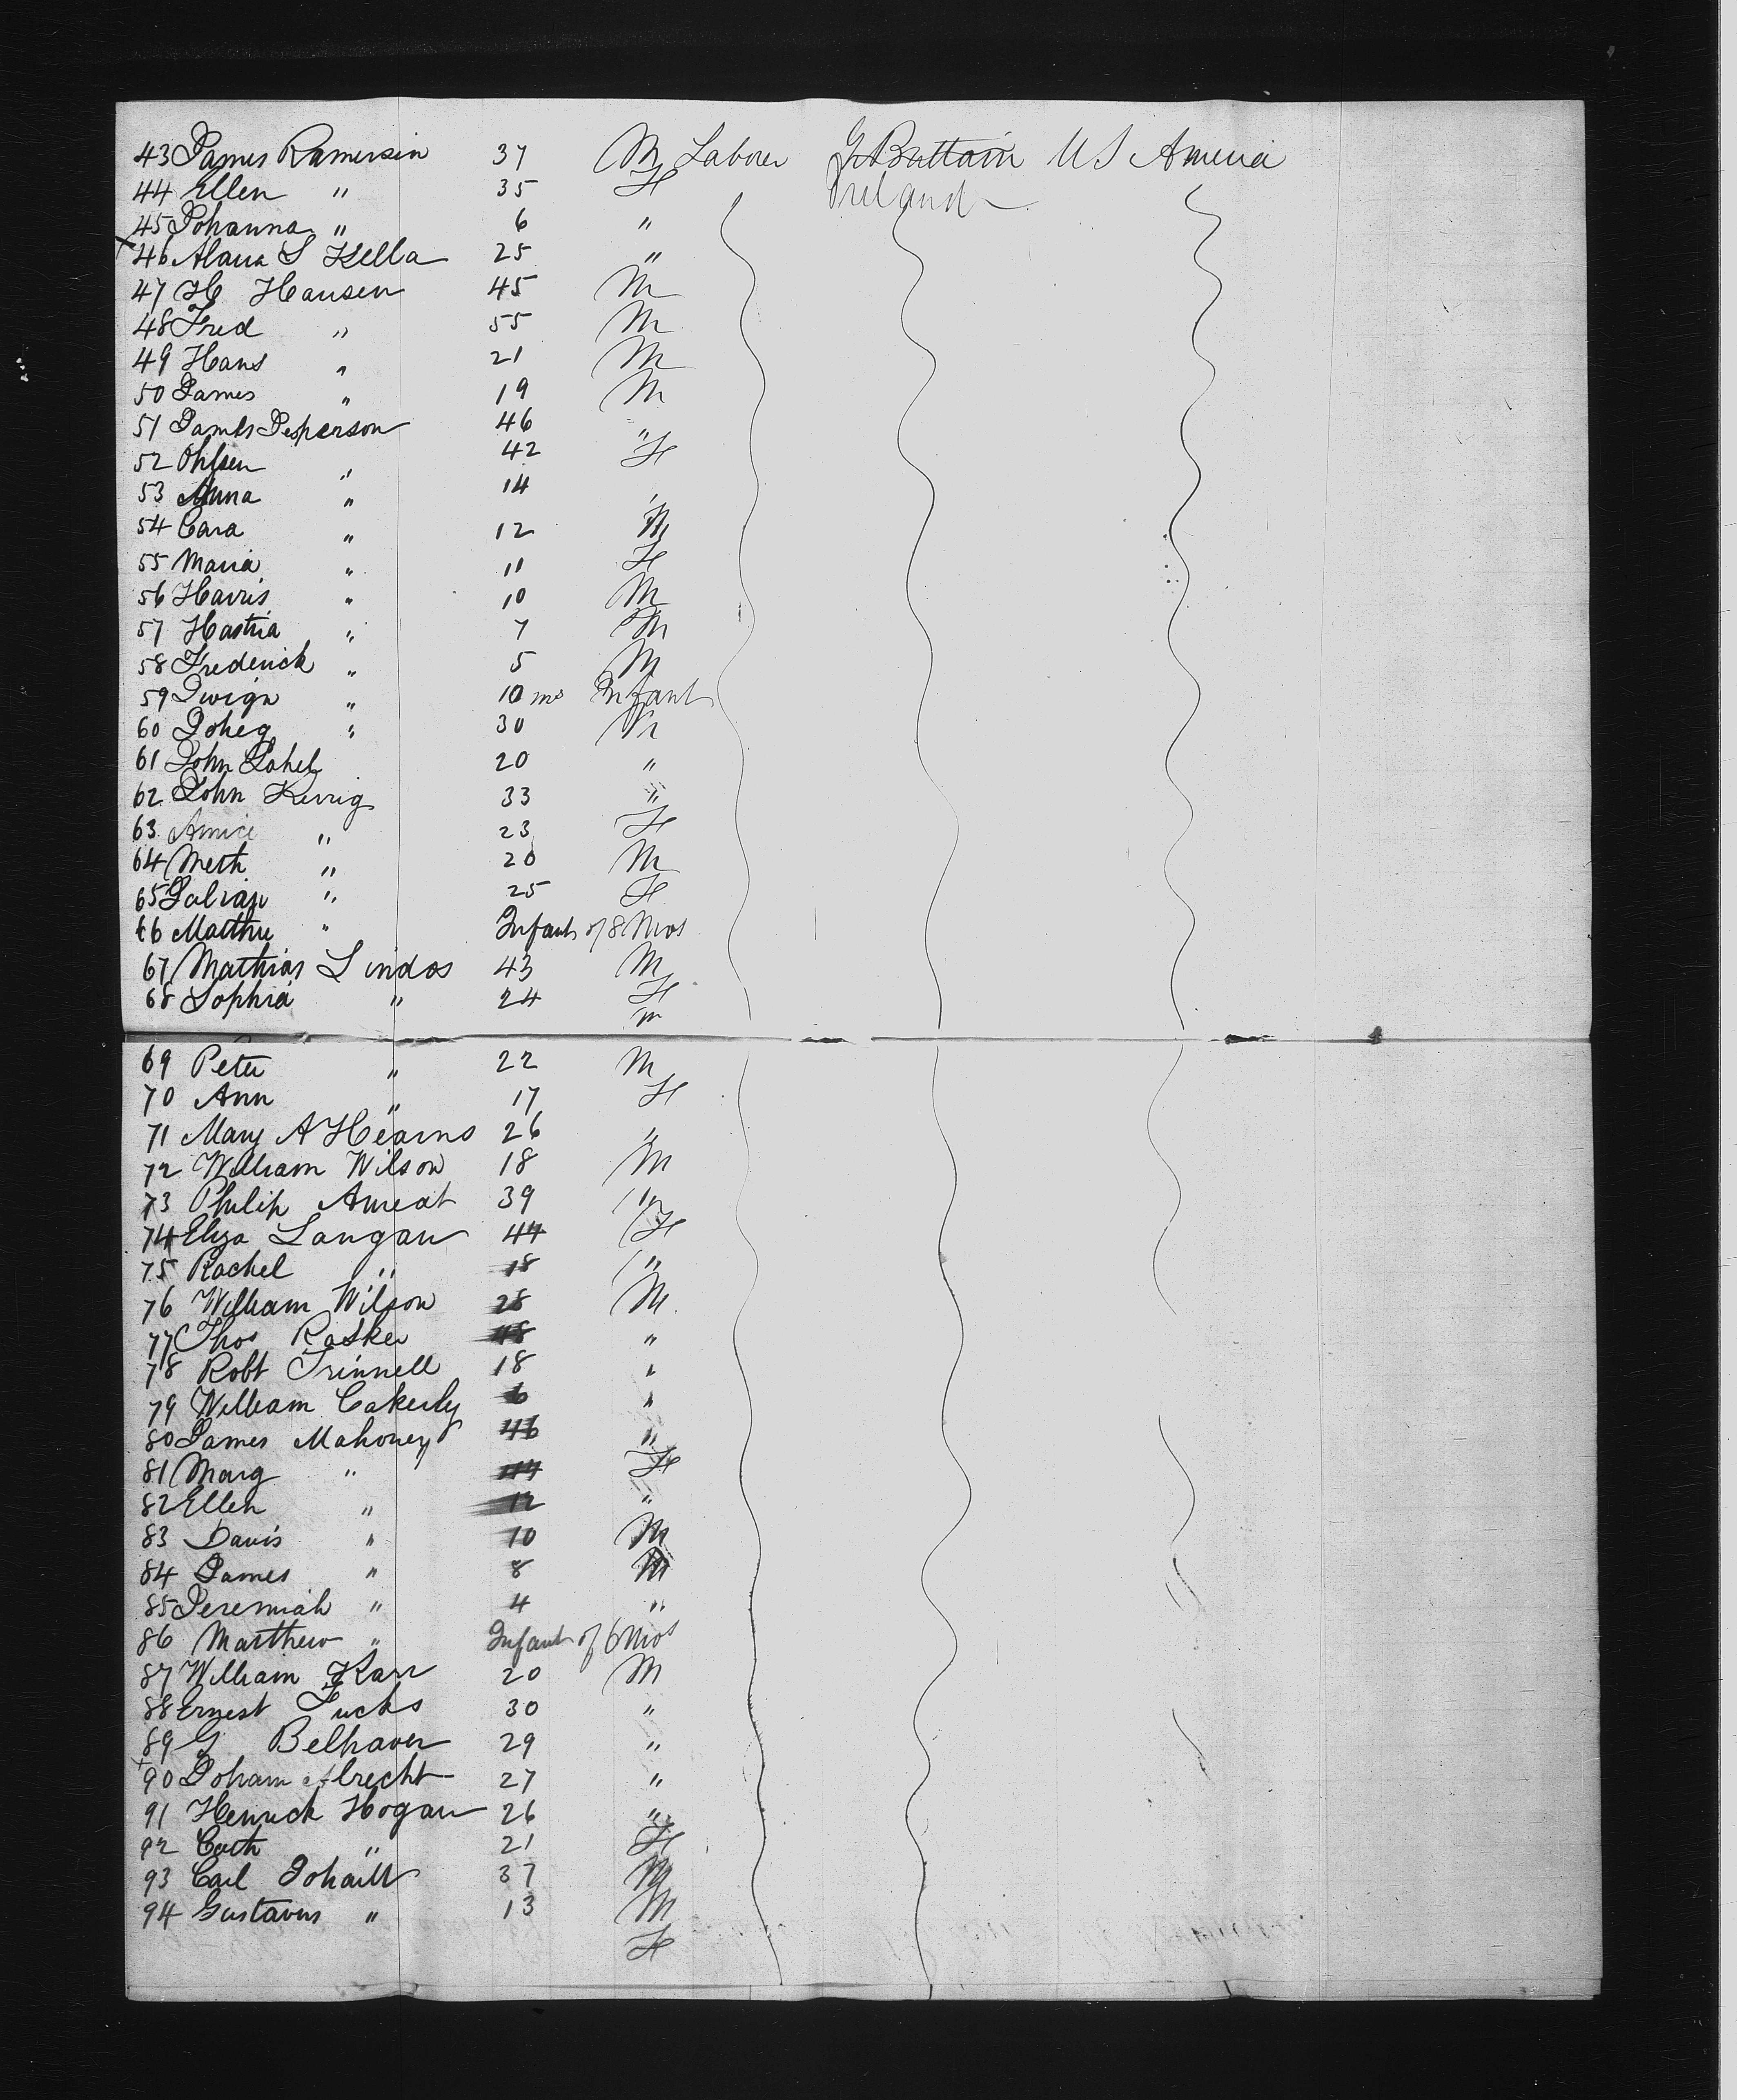 43 James Ramersen 37 M Laborer Gr Brittain US America
44 Ellen " 35 F Ireland
45 Johanna " 6 "
x 46 Alaua S Kella 25 "
47 H Hansen 45 M
48 Fred " 55 M
49 Hans " 21 M
50 James " 19 M
51 James Jesperson 46 "
52 Ohlsen " 42 F
53 Anna " 14 "
54 Cara " 12 M
55 Maria " 11 F
56 Harris " 10 M
57 Hastria " 7 M
58 Frederick " 5 M
59 " 10 mos Infant
60 Joheg " 30 M
61 John 20 "
62 John Kerrig 33 "
63 " 23 F
64 Meth " 20 M
65 " 25 F
66 Matthu " Infant of 8 Mos
67 Mathias Lindos 43 M
68 Sophia " 24 F
m
69 Peter " 22 M
70 Ann " 17 F
71 Mary A Hearns 26 "
72 William Wilson 18 M
73 Philip 39 "
74 Eliza Langan 44 F
75 Rachel " 18 "
76 William Wilson 28 M
77 Thos Rasker 48 "
78 Robt Trinnell 18 "
79 William Cakerly 6 "
80 James Mahoney 46 "
81 Marg " 44 F
82 Ellen " 12 "
83 Davis " 10 M
84 James " 8 M
85 Jeremiah " 4 "
86 Matthew " Infant of 6 Mos
87 William Karr 20 M
88 Ernest Fucks 30 "
89 G Belhaver 29 "
x 90 Joham Albrecht 27 "
91 Henrick Hogan 26 "
92 Cath " 21 F
93 Carl 37 M
94 Gustavus " 13 M
F